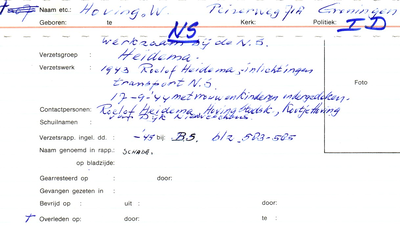 Naam etc.: Hoving. W. Groningen
Geboren: te Kerk: Politiek: I D
NS
werkzaam bij de N.S.
Verzetsgroep : Heidema.
Verzetswerk : 1943 Roelof Heidema, inlichtingen
transport N.S.
17-9-44 met vrouw en kinderen ondergedoken.
Foto
Contactpersonen: Roelof Heidema, Hoving
Schuilnaam :
Verzetsrapp. ingel. dd. : -45 bij: B.S. blz 583-585
Naam genoemd in rapp.: SCHADA.
op bladzijde:
Gearresteerd op : door:
Gevangen gezeten in :
Bevrijd op : uit : door:
† Overleden op: door: te :